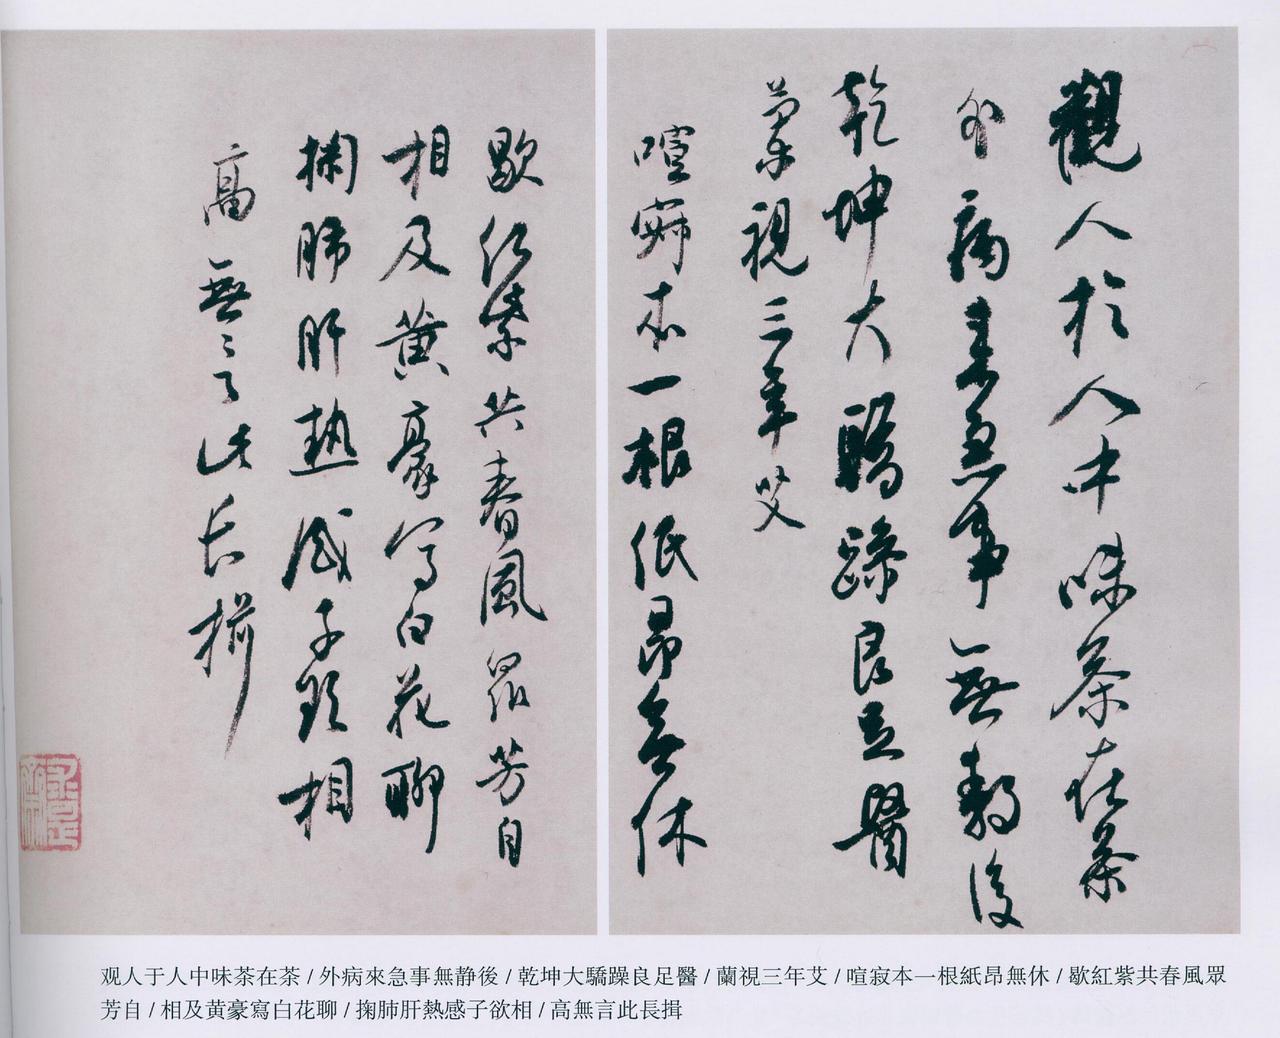 觀人於人中味茶在茶
外病来急事無静後
乾坤大驕躁良足醫
蘭視三年艾
喧寂本一根低昂無休
歇紅紫共春風眾芳自
相及黄豪寫白花聊
掬肺肝熱感子欲相
高無言此長揖
观人于人中味茶在茶/外病來急事無静後/乾坤大驕躁良足醫/蘭視三年艾/喧寂本一根紙昂無休/歇紅紫共春風眾
芳自/相及黄豪寫白花聊/掬肺肝熱感子欲相/高無言此長揖